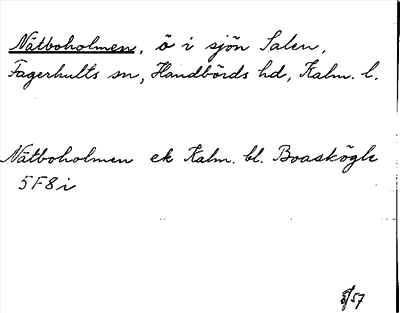 Nätboholmen, ö i sjön Salen,
Fagerhults sn, Handbörds hd, Kalm. l.
Nätboholmen ek Kalm. bl. Boaskögle
5F8i
/57